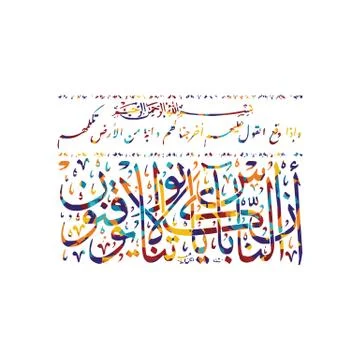 بسم الله الرحمن الرحيم
وإذا وقع القول عليهم أخرجنا لهم دابة من الأرض تكلمهم
أن الناس كانوا بآياتنا لا يوقنون